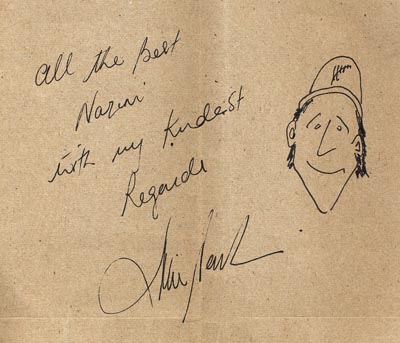 All the best
Nazmi
with my Kindest
Regards